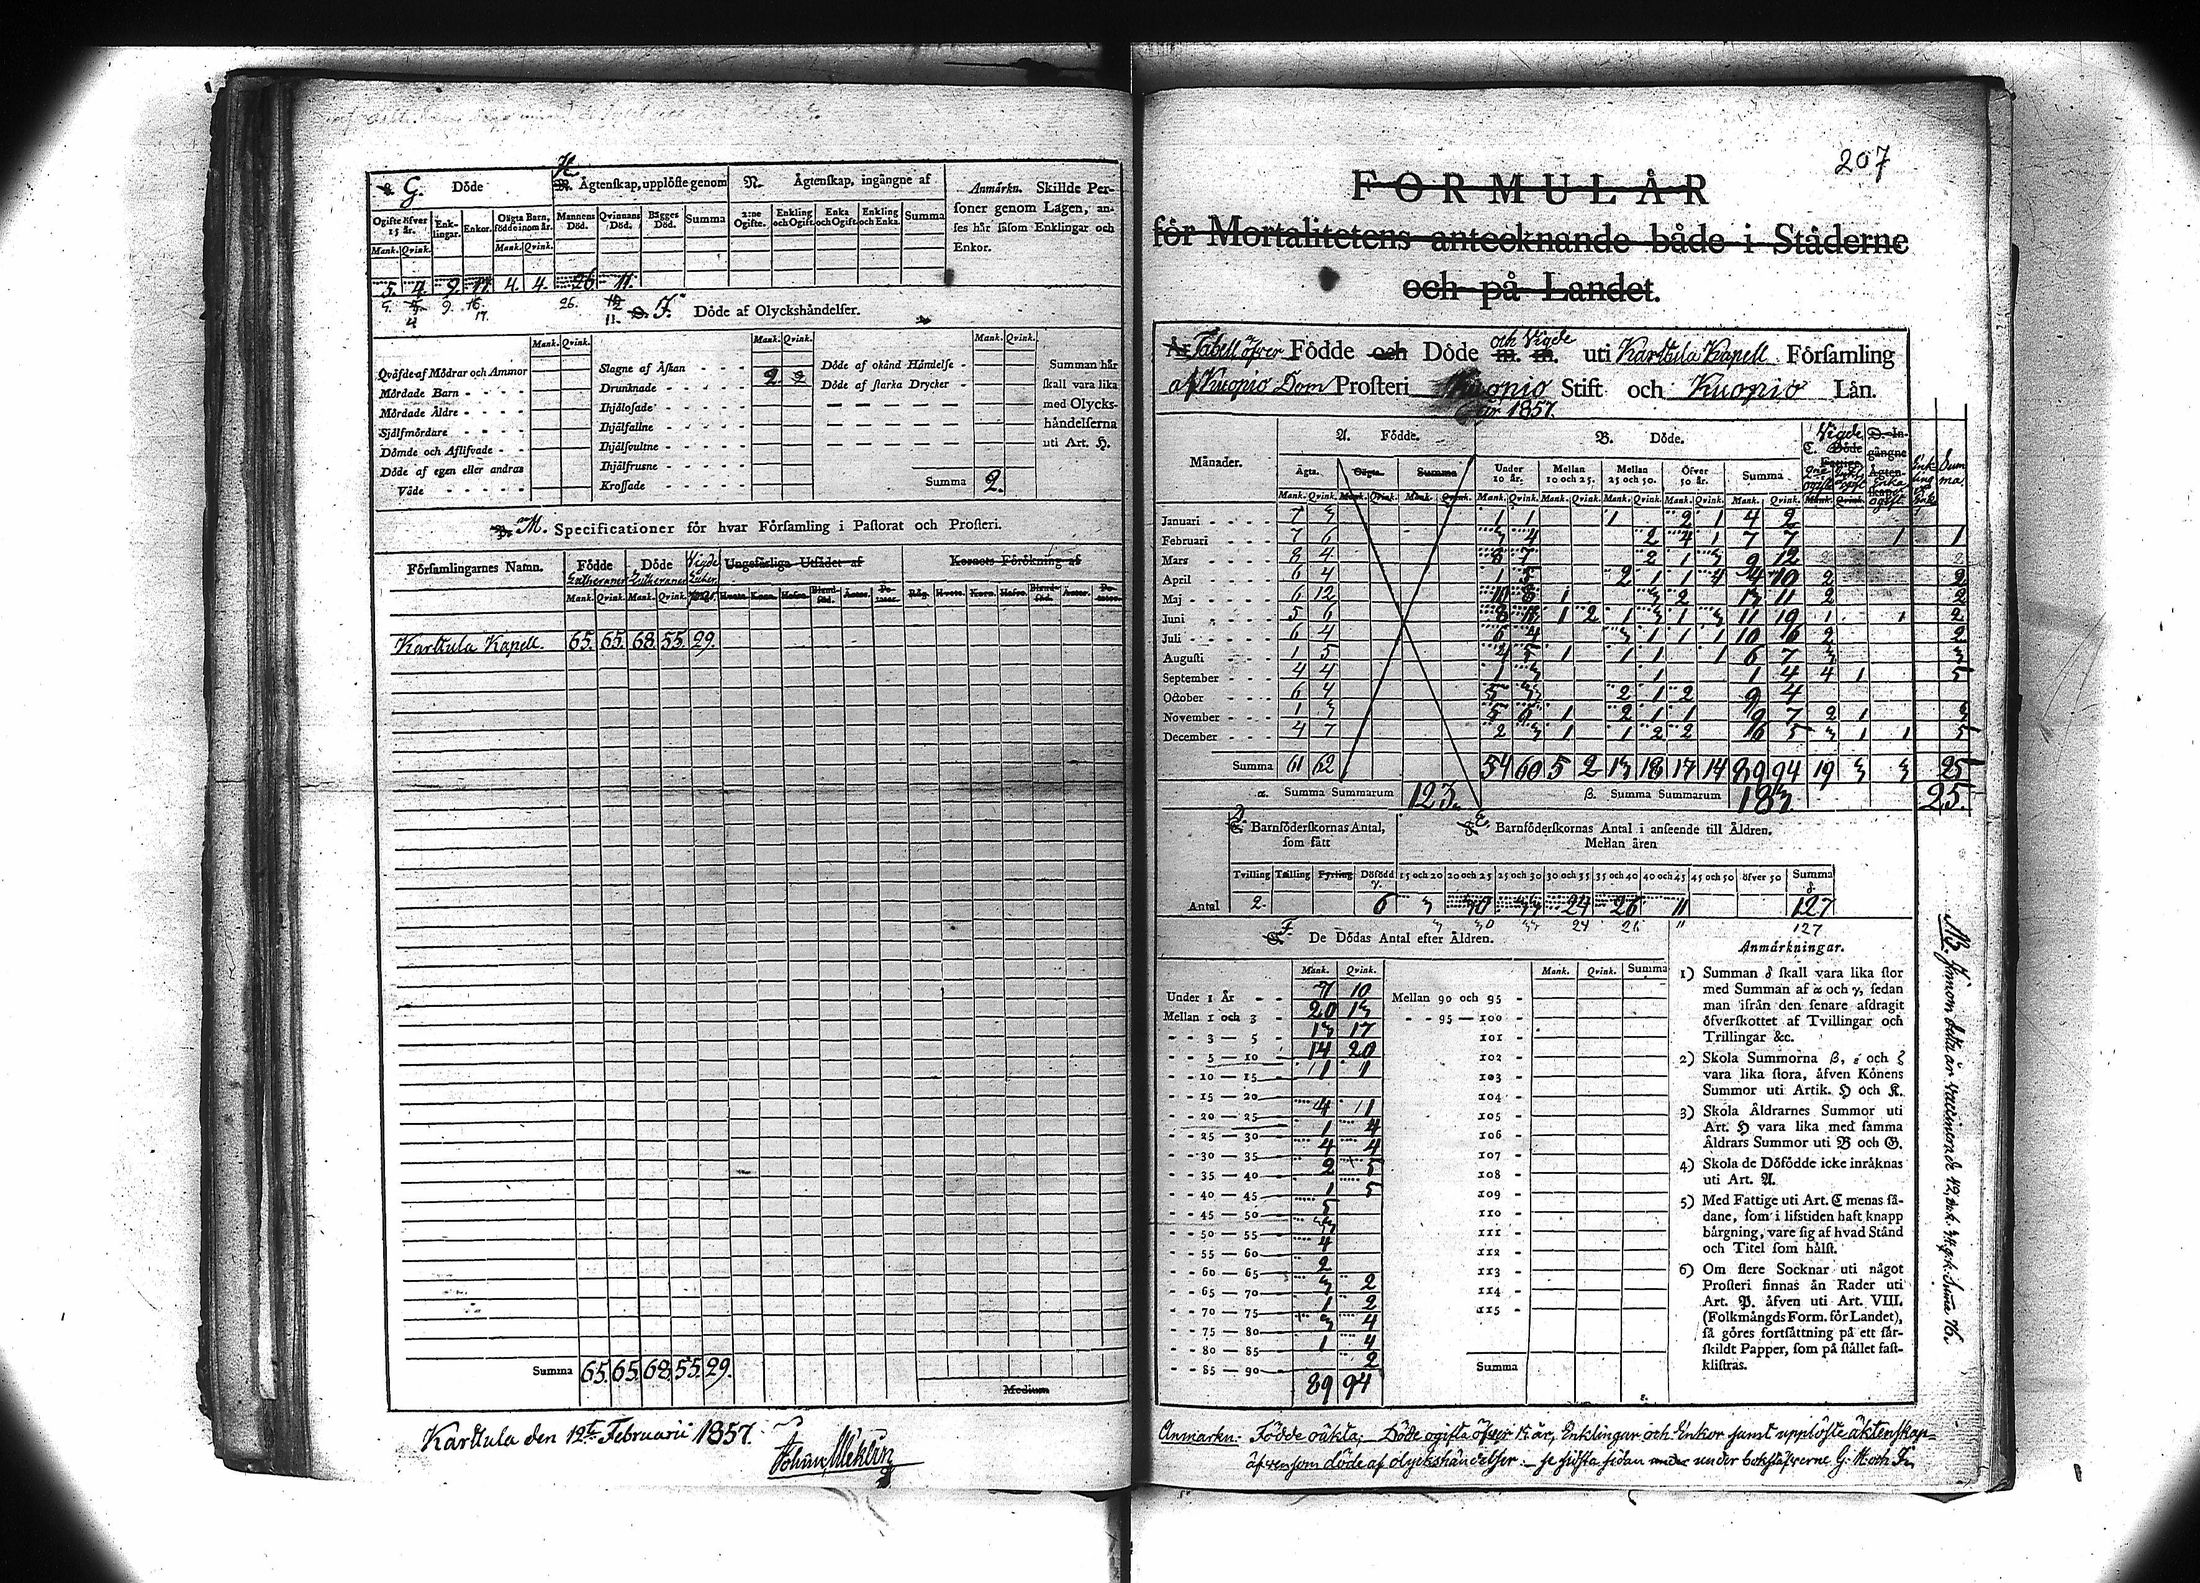 G. Döde
H. Ägtenskap, upplöste genom
N. Ägtenskap, ingångne af
Anmärkn. Skillde Per-
soner genom Lagen, an-
ses här såsom Enklingar och
Enkor.
Ogifte öfver 15 år. Enk-lingar. Enkor. Oägta Barn, födde inom år. Mannens Död. Qvinnans Död. Bägges Död. Summa 2:ne Ogifte. Enkling och Ogift. Enka och Ogift. Enkling och Enka. Summa
Mank. Qvink. Mank. Qvink.
5. 4. 9. 17. 4. 4. 26 11.
5. 9. 16. 26. 12
4 17. 11.
I. Döde af Olyckshändelser.
Mank. Qvink. Mank. Qvink. Mank. Qvink.
Qväfde af Mödrar och Ammor
Mördade Barn
Mördade Äldre
Sjelfmördare
Dömde och Aflifvade
Döde af egen eller andras
Våde
Slagne af Åskan
Drunknade 2
Ihjälfrusne
Krossade
Ihjälfallne
Ihjälsvultne
Döde af okänd Händelse
Döde af starka Drycker
Summa 2.
Summan här
skall vara lika
med Olycks-
händelserna
uti Art. H.
M. Specificationer för hvar Församling i Pastorat och Prosteri.
Församlingarnes Namn. Födde Döde Vigde Ungefärliga Utsädet af Kornets Förökning af
Lutheraner Lutheraner Luther.
Mank. Qvink. Mank. Qvink.
Karttula Kapell. 65. 65. 68. 55. 29.
Summa 65. 65. 68. 55. 29.
Medium
Karttula den 12te Februarii 1857.
207
FORMULÄR
för Mortalitetens antecknande både i Städerne
och på Landet.
Tabell öfver Födde och Döde och Vigde uti Karttula Kapell Församling
af Kuopio Dom Prosteri Kuopio Stift och Kuopio Län.
år 1857.
Månader. A. Födde. B. Döde. Vigde
Ägta. Oägta. Summa Under 10 år. Mellan 10 och 25. Mellan 25 och 50. Öfver 50 år. Summa
Mank. Qvink. Mank. Qvink. Mank. Qvink. Mank. Qvink. Mank. Qvink. Mank. Qvink. Mank. Qvink. Mank. Qvink.
Januari 7 3 1 1 1 2 1 4 2
Februari 7 6 3 4 2 4 1 7 7 1 1
Mars 8 4 8 7 2 1 3 9 12
April 6 4 1 5 2 1 1 4 4 10 2 2
Maj 6 12 10 8 1 3 2 13 11 2 2
Juni 5 6 8 11 1 2 1 3 1 3 11 19 1 1 2
Juli 6 4 6 4 3 1 1 1 10 6 2 2
Augusti 1 5 4 5 1 1 1 1 6 7 3 3
September 4 4 1 3 1 1 4 4 1 5
October 6 4 5 3 2 1 2 9 4
November 1 3 5 6 1 2 1 1 9 7 2 1 3
December 4 7 2 3 1 1 2 2 6 5 3 1 1 5
Summa 61 62 54 60 5 2 13 18 17 14 89 94 19 3 3 25
α. Summa Summarum 123. β. Summa Summarum 183 25.
D. Barnföderskornas Antal,
som fått
E. Barnföderskornas Antal i anseende till Åldren.
Mellan åren
Tvilling Trilling Fyrling Döfödd γ. 15 och 20 20 och 25 25 och 30 30 och 35 35 och 40 40 och 45 45 och 50 öfver 50 Summa δ
Antal 2. 6 3 30 33 24 26 11 127
3 30 33 24 26 11 127
F. De Dödas Antal efter Åldren.
Mank. Qvink. Mank. Qvink. Summa
Under 1 År 7 10 Mellan 90 och 95
Mellan 1 och 3 20 13 95 — 100
3 — 5 13 17 101
5 — 10 14 20 102
10 — 15 1 1 103
15 — 20 104
20 — 25 4 1 105
25 — 30 1 4 106
30 — 35 4 4 107
35 — 40 2 5 108
40 — 45 1 5 109
45 — 50 5 110
50 — 55 33 111
55 — 60 4 112
60 — 65 2 113
65 — 70 3 2 114
70 — 75 1 2 115
75 — 80 3 4
80 — 85 1 4
85 — 90 2 Summa
89 94
Anmärkningar.
1) Summan δ skall vara lika stor
med Summan af α och γ, sedan
man ifrån den senare afdragit
öfverskottet af Tvillingar och
Trillingar &c.
2) Skola Summorna β, ε och ζ
vara lika stora, äfven Könens
Summor uti Artik. H och K.
3) Skola Åldrarnes Summor uti
Art. H vara lika med samma
Åldrars Summor uti B och G.
4) Skola de Döfödde icke inräknas
uti Art. A.
5) Med Fattige uti Art. C menas så-
dane, som i lifstiden haft knapp
bärgning, vare sig af hvad Stånd
och Titel som hälst.
6) Om flere Socknar uti något
Prosteri finnas än Rader uti
Art. P. äfven uti Art. VIII.
(Folkmängds Form. för Landet),
så göres fortsättning på ett sär-
skildt Papper, som på stället fast-
klistras.
NB. Innom detta år vaccinerade 42, mk. 34 qk. Suma 76.
Anmärkn. Födde oäkta; Döde ogifta öfver 15 år, Enklingar och Enkor samt upplöste äktenskap
äfvensom döde af olyckshändelser – se sidsta sidan under bokstäfverne G. H. och I.